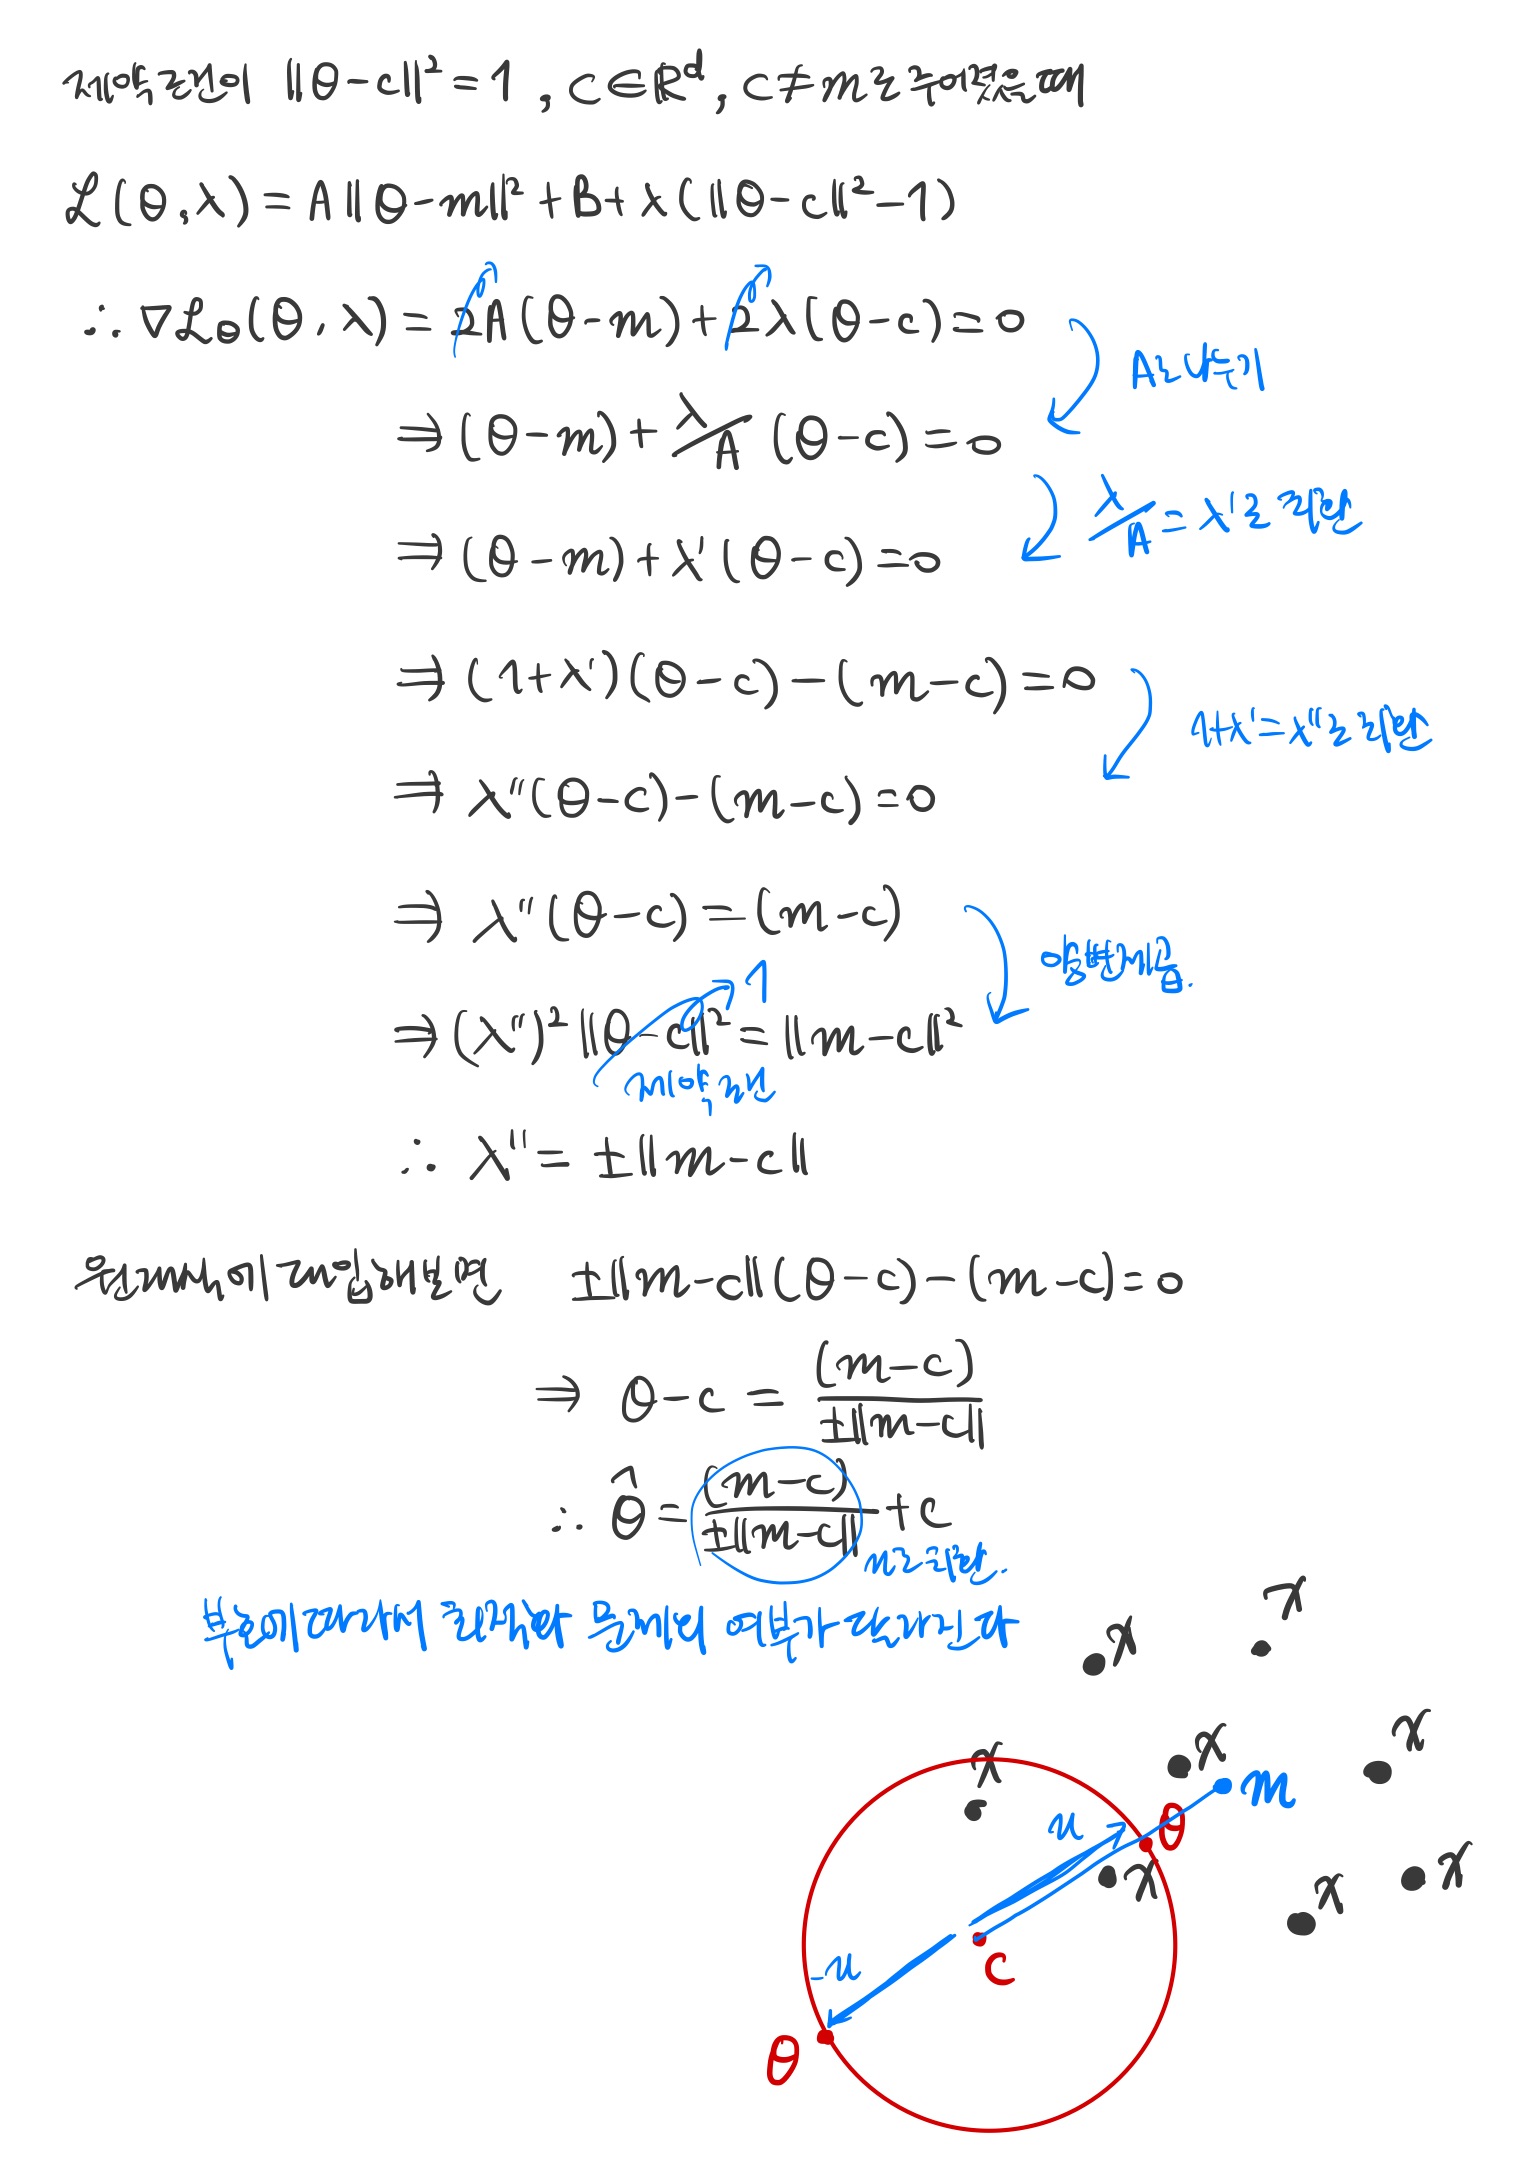 제약조건이 ||θ-c||² = 1 , c∈ℝᵈ, c≠m로 주어졌을 때
ℒ(θ,λ) = A||θ-m||² + B + λ(||θ-c||²-1)
∴ ∇ℒ_θ(θ,λ) = 2A(θ-m) + 2λ(θ-c) = 0
A로 나누기
⇒ (θ-m) + λ/A (θ-c) = 0
λ/A = λ'로 치환
⇒ (θ-m) + λ'(θ-c) = 0
⇒ (1+λ')(θ-c) - (m-c) = 0
1+λ' = λ''로 치환
⇒ λ''(θ-c) - (m-c) = 0
⇒ λ''(θ-c) = (m-c)
양변제곱.
⇒ (λ'')² ||θ-c||² = ||m-c||²
1
제약조건
∴ λ'' = ±||m-c||
원래식에 대입해보면 ±||m-c||(θ-c) - (m-c) = 0
⇒ θ-c = (m-c) / ±||m-c||
∴ θ̂ = (m-c) / ±||m-c|| + c
u로 치환.
부호에 따라서 최적화 문제의 여부가 달라진다
x
x
x
x
x
m
u
θ
x
x
x
c
-u
θ